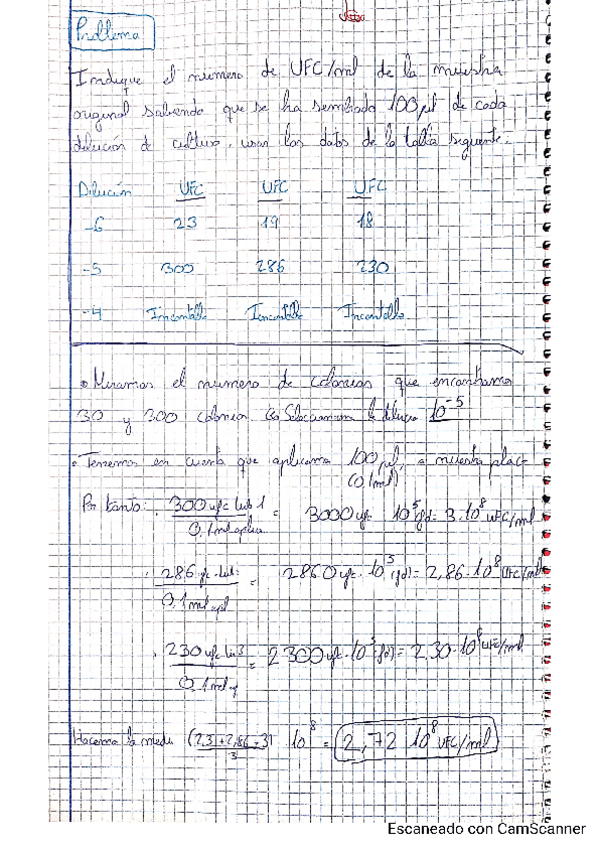 Problema
Indique el numero de UFC/ml de la muestra
original sabiendo que se ha sembrado 100 µl de cada
dilución de cultivo, usar los datos de la tabla siguiente:
Dilución UFC UFC UFC
-6 23 19 18
-5 300 286 230
-4 Incontable Incontable Incontable
• Miramos el numero de colonias que encontramos
30 y 300 colonias Seleccionamos la dilución 10⁻⁵
• Tenemos en cuenta que aplicamos 100 µl, a nuestra placa
(0,1ml)
Por tanto: 300 ufc tub 1 = 3000 ufc 10⁵ (fd) = 3·10⁸ UFC/ml
0,1 ml
286 = 2860 ufc · 10⁵ (fd) = 2,86·10⁸ UFC/ml
0,1 ml
230 ufc = 2300 ufc · 10⁵ (fd) = 2,30·10⁸ UFC/ml
0,1 ml
Hacemos la media (2,3+2,86+3) 10⁸ = 2,72 10⁸ UFC/ml
3
Escaneado con CamScanner